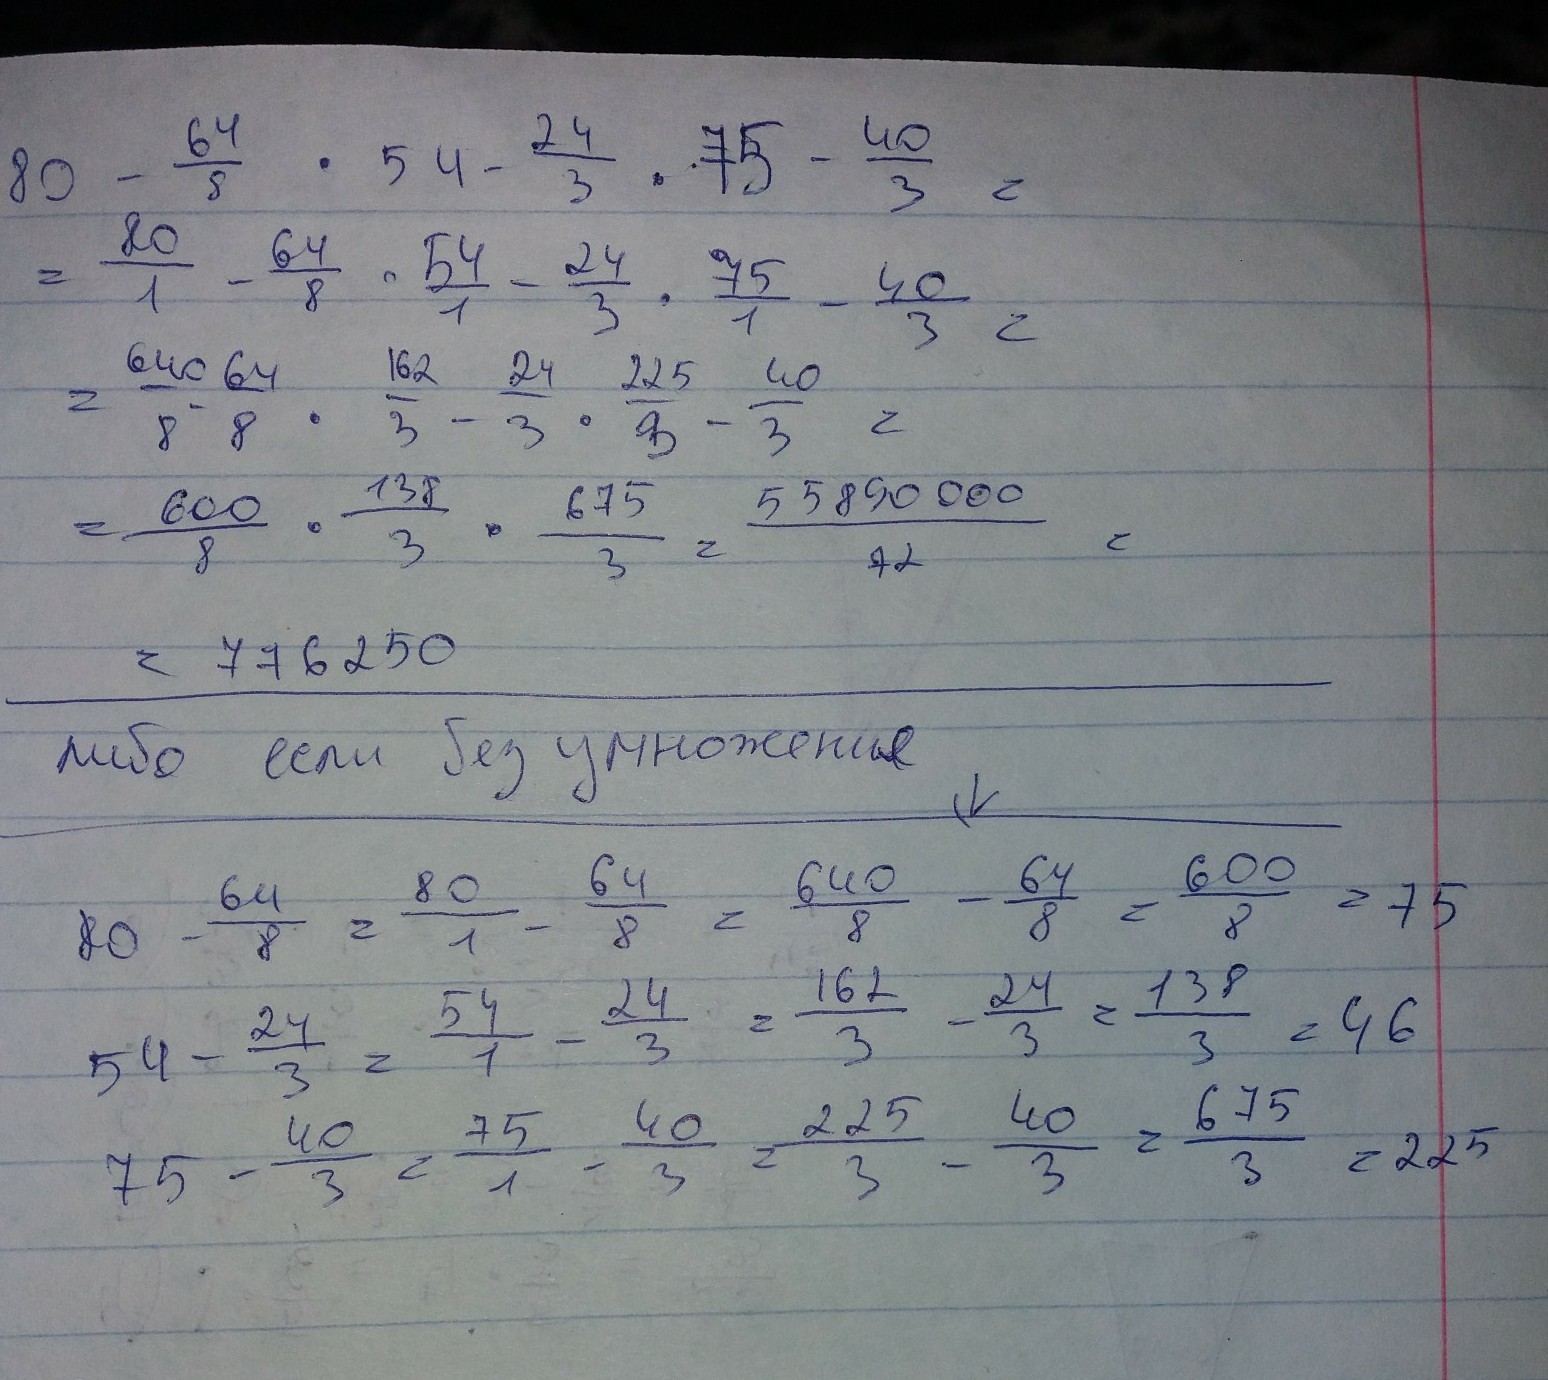 80 - 64/8 · 54 - 24/3 · 75 - 40/3 =
= 80/1 - 64/8 · 54/1 - 24/3 · 75/1 - 40/3 =
= 640/8 - 64/8 · 162/3 - 24/3 · 225/3 - 40/3 =
= 600/8 · 138/3 · 675/3 = 55890000/72 =
= 776250
либо если без умножения ↓
80 - 64/8 = 80/1 - 64/8 = 640/8 - 64/8 = 600/8 = 75
54 - 24/3 = 54/1 - 24/3 = 162/3 - 24/3 = 138/3 = 46
75 - 40/3 = 75/1 - 40/3 = 225/3 - 40/3 = 675/3 = 225